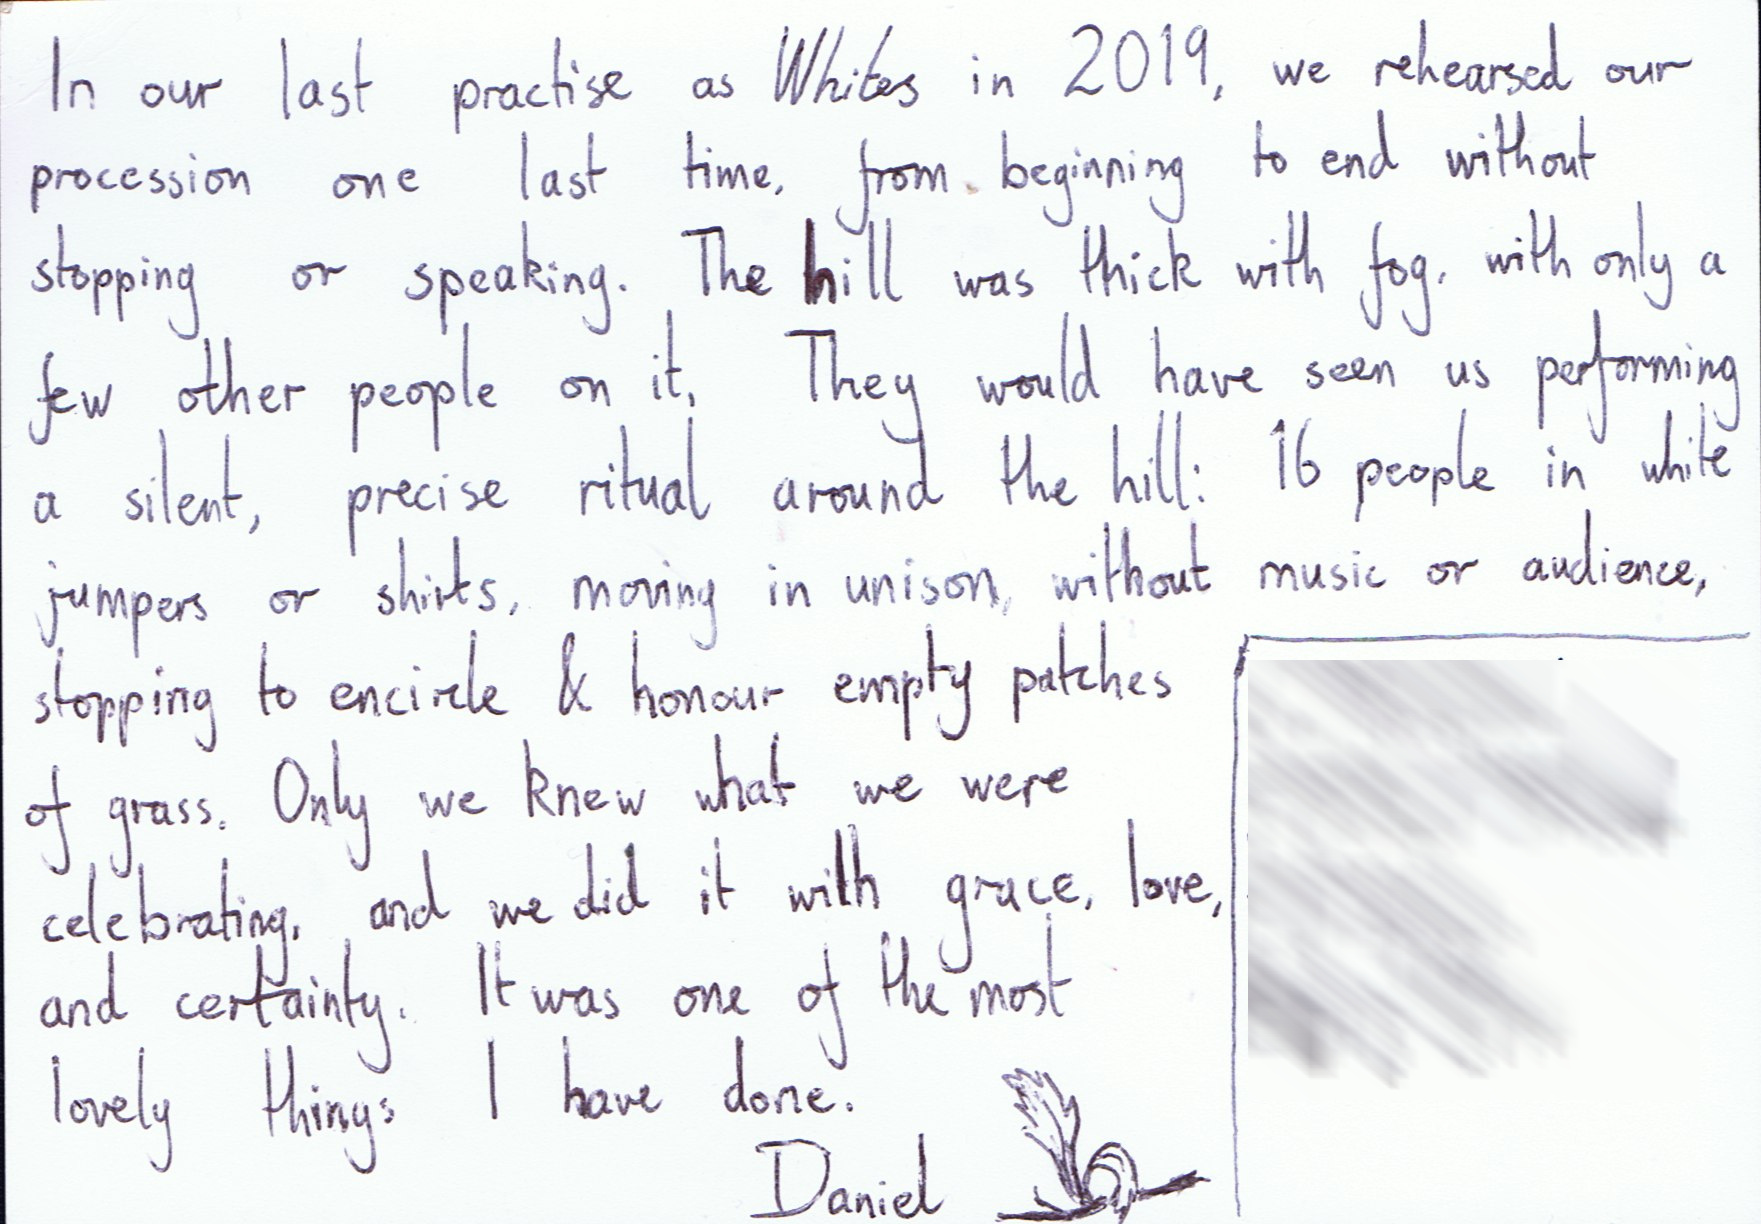 In our last practise as Whites in 2019, we rehearsed our
procession one last time, from beginning to end without
stopping or speaking. The hill was thick with fog, with only a
few other people on it. They would have seen us performing
a silent, precise ritual around the hill: 16 people in white
jumpers or shirts, moving in unison, without music or audience,
stopping to encircle & honour empty patches
of grass. Only we knew what we were
celebrating, and we did it with grace, love,
and certainty. It was one of the most
lovely things I have done.
Daniel